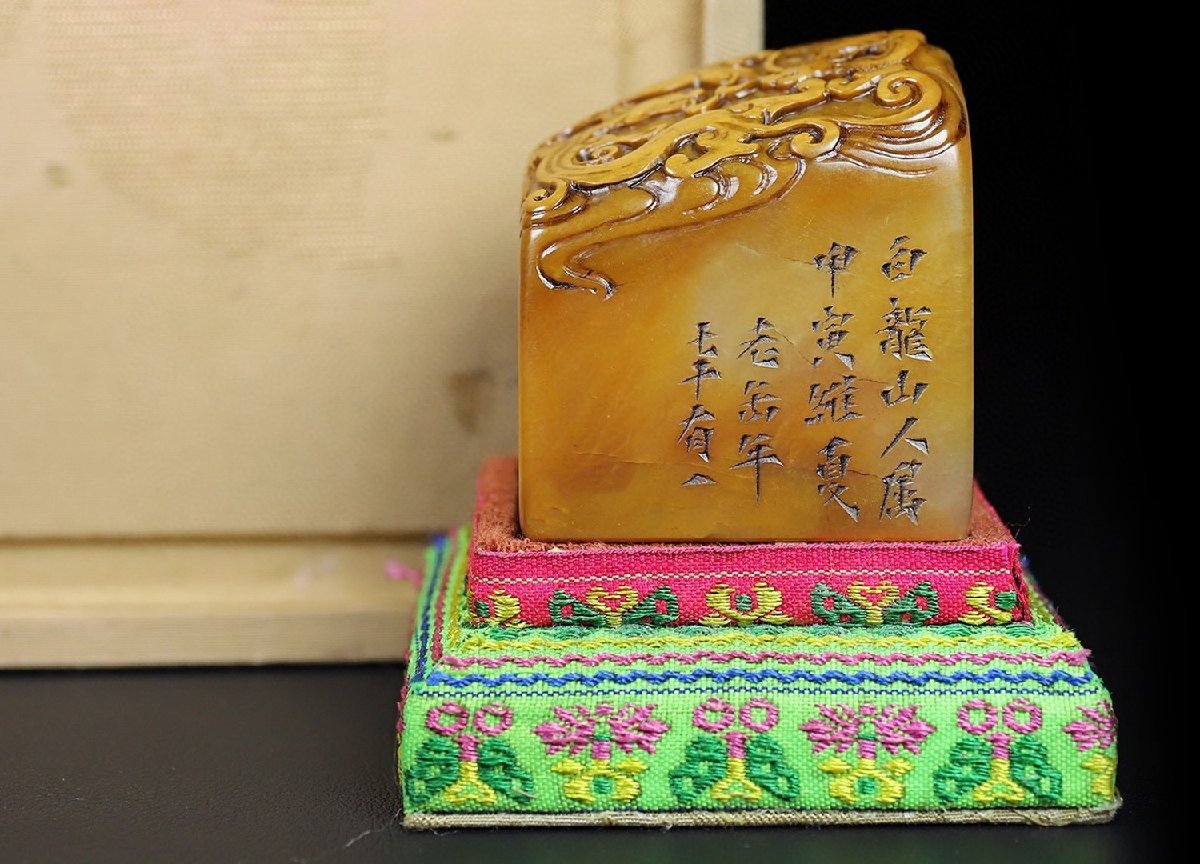 白龍山人属
甲寅維夏
老缶年
七十有一